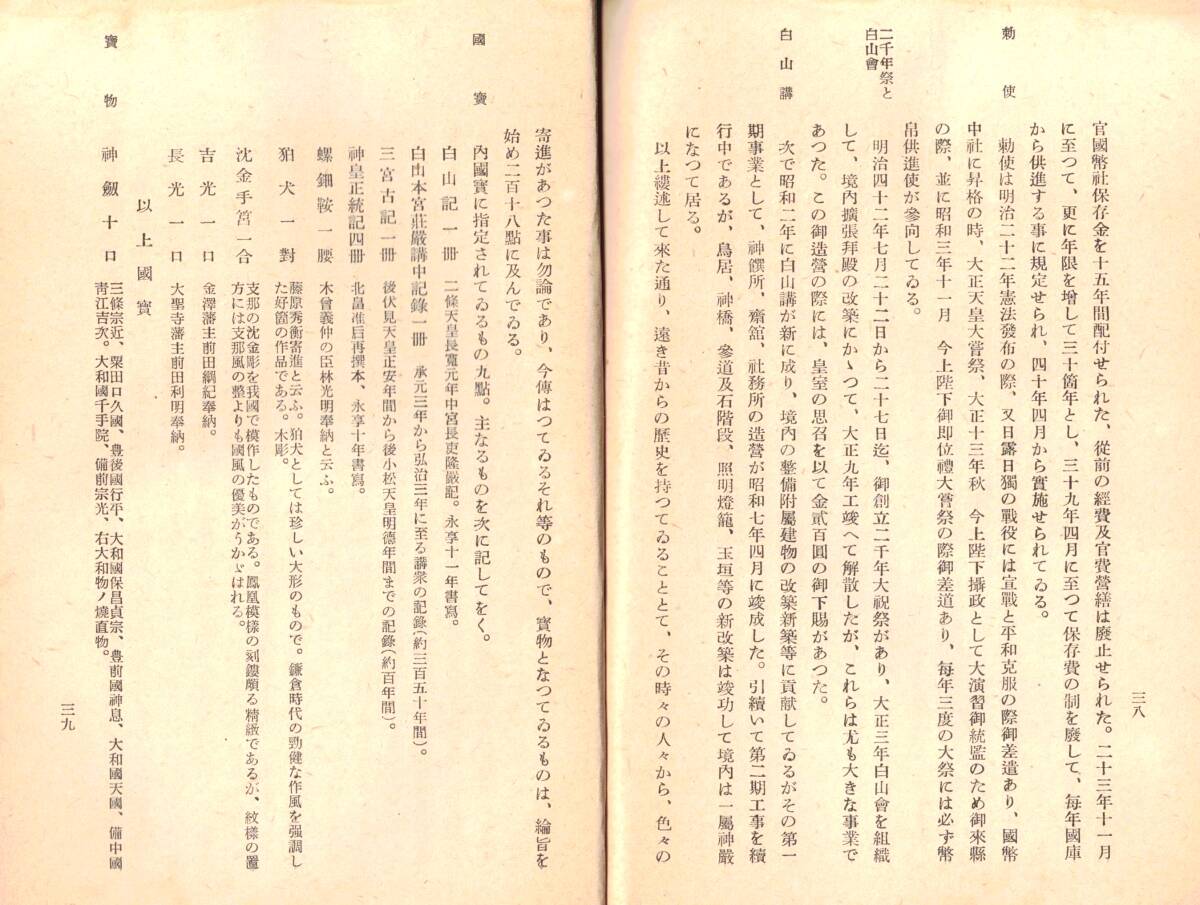 三八
官國幣社保存金を十五年間配付せられた、從前の經費及官費營繕は廢止せられた。二十三年十一月
に至つて、更に年限を增して三十箇年とし、三十九年四月に至つて保存費の制を廢して、每年國庫
から供進する事に規定せられ、四十年四月から實施せられてゐる。
勅使
勅使は明治二十二年憲法發布の際、又日露日獨の戰役には宣戰と平和克服の際御差遣あり、國幣
中社に昇格の時、大正天皇大嘗祭、大正十三年秋　今上陛下攝政として大演習御統監のため御來縣
の際、並に昭和三年十一月　今上陛下御卽位禮大嘗祭の際御差遣あり、每年三度の大祭には必ず幣
帛供進使が參向してゐる。
二千年祭と
白山會
明治四十二年七月二十二日から二十七日迄、御創立二千年大祝祭があり、大正三年白山會を組織
して、境內擴張拜殿の改築にかゝつて、大正九年工竣へて解散したが、これらは尤も大きな事業で
あつた。この御造營の際には、皇室の思召を以て金貳百圓の御下賜があつた。
白山講
次で昭和二年に白山講が新に成り、境內の整備附屬建物の改築新築等に貢献してゐるがその第一
期事業として、神饌所、齋舘、社務所の造營が昭和七年四月に竣成した。引續いて第二期工事を續
行中であるが、鳥居、神橋、參道及石階段、照明燈籠、玉垣等の新改築は竣功して境內は一層神嚴
になつて居る。
以上縷述して來た通り、遠き昔からの歷史を持つてゐることとて、その時々の人々から、色々の
寄進があつた事は勿論であり、今傳はつてゐるそれ等のもので、寶物となつてゐるものは、綸旨を
始め二百十八點に及んでゐる。
國寶
內國寶に指定されてゐるもの九點。主なるものを次に記してをく。
白山記一冊　二條天皇長寬元年中宮長吏隆嚴記。永享十一年書寫。
白山本宮莊嚴講中記錄一冊　承元三年から弘治三年に至る講衆の記錄（約三百五十年間）。
三宮古記一冊　後伏見天皇正安年間から後小松天皇明德年間までの記錄（約百年間）。
神皇正統記四冊　北畠准后再撰本、永享十年書寫。
螺鈿鞍一腰　木曾義仲の臣林光明奉納と云ふ。
狛犬一對　藤原秀衡寄進と云ふ。狛犬としては珍しい大形のもので。鎌倉時代の勁健な作風を强調し
た好箇の作品である。木彫。
沈金手筥一合　支那の沈金彫を我國で模作したものである。鳳凰模樣の刻鏤頗る精緻であるが、紋樣の置
方には支那風の整よりも國風の優美がうかゞはれる。
吉光一口　金澤藩主前田綱紀奉納。
長光一口　大聖寺藩主前田利明奉納。
以上國寶
寶物
神劔十口　三條宗近、粟田口久國、豊後國行平、大和國保昌貞宗、豊前國神息、大和國天國、備中國
靑江吉次。大和國千手院、備前宗光、右大和物ノ燒直物。
三九